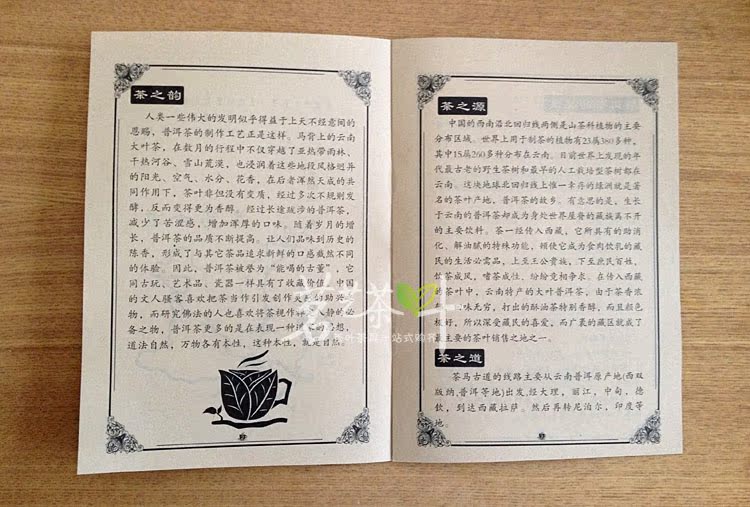 茶之韵
人类一些伟大的发明似乎得益于上天不经意间的
恩赐，普洱茶的制作工艺正是这样。马背上的云南
大叶茶，在数月的行程中不仅穿越了亚热带雨林、
干热河谷、雪山荒漠，也浸润着这些地段风格迥异
的阳光、空气、水分、花香，在后者浑然天成的共
同作用下，茶叶非但没有变质，经过多次不规则发
酵，反而变得更为香醇。经过长途跋涉的普洱茶，
减少了苦涩感，增加浑厚的口味。随着岁月的增
长，普洱茶的品质不断提高。让人们品味到历史的
陈香，形成了与其它茶品追求新鲜的口感截然不同
的体验。因此，普洱茶被誉为“能喝的古董”，它
同古玩、艺术品、瓷器一样具有了收藏价值。中国
的文人骚客喜欢把茶当作引发创作灵感的助兴
物，而研究佛法的人也喜欢将茶视作入静的必
备之物，普洱茶更多的是在表现一种思想，
道法自然，万物各有本性，这种本性，就是自然。
茶之源
中国的西南沿北回归线两侧是山茶科植物的主要
分布区域。世界上用于制茶的植物有23属380多种，
其中15属260多种分布在云南。目前世界上发现的年
代最古老的野生茶树和最早的人工栽培型茶树都在
云南。这块地球北回归线上惟一幸存的绿洲就是著
名的茶叶产地，普洱茶的故乡。有意思的是，生长
于云南的普洱茶却成为身处世界屋脊的藏族离不开
的主要饮料。茶一经传入西藏，它所具有的助消
化、解油腻的特殊功能，顿使它成为食肉饮乳的藏
民的生活必需品，上至王公贵族，下至庶民百姓，
饮茶成风，嗜茶成性，纷纷竞相争求。在传入西藏
的茶叶中，云南特产的大叶普洱茶，由于茶香浓
味无穷，打出的酥油茶特别香醇，而且颜色
极好，所以深受藏民的喜爱，而广袤的藏区就成了
主要的茶叶销售之地之一。
茶之道
茶马古道的线路主要从云南普洱原产地(西双
版纳,普洱等地)出发,经大理，丽江，中甸，德
钦，到达西藏拉萨。然后再转尼泊尔，印度等
地。